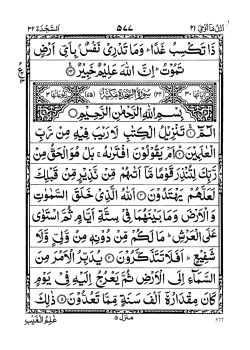 اتل مآ اوحی ۲۱ ۵۷۷ السجدة ۳۲
ذَا تَكْسِبُ غَدًا ؕ وَمَا تَدْرِیْ نَفْسٌۢ بِاَیِّ اَرْضٍ
تَمُوْتُ ؕ اِنَّ اللّٰهَ عَلِیْمٌ خَبِیْرٌ
بِسْمِ اللّٰهِ الرَّحْمٰنِ الرَّحِیْمِ
الٓمّٓ ۚ تَنْزِیْلُ الْكِتٰبِ لَا رَیْبَ فِیْهِ مِنْ رَّبِّ
الْعٰلَمِیْنَ ؕ اَمْ یَقُوْلُوْنَ افْتَرٰىهُ ۚ بَلْ هُوَ الْحَقُّ مِنْ
رَّبِّكَ لِتُنْذِرَ قَوْمًا مَّاۤ اَتٰىهُمْ مِّنْ نَّذِیْرٍ مِّنْ قَبْلِكَ
لَعَلَّهُمْ یَهْتَدُوْنَ اَللّٰهُ الَّذِیْ خَلَقَ السَّمٰوٰتِ
وَالْاَرْضَ وَمَا بَیْنَهُمَا فِیْ سِتَّةِ اَیَّامٍ ثُمَّ اسْتَوٰى
عَلَى الْعَرْشِ ؕ مَا لَكُمْ مِّنْ دُوْنِهٖ مِنْ وَّلِیٍّ وَّلَا
شَفِیْعٍ ؕ اَفَلَا تَتَذَكَّرُوْنَ یُدَبِّرُ الْاَمْرَ مِنَ
السَّمَآءِ اِلَى الْاَرْضِ ثُمَّ یَعْرُجُ اِلَیْهِ فِیْ یَوْمٍ
كَانَ مِقْدَارُهٗۤ اَلْفَ سَنَةٍ مِّمَّا تَعُدُّوْنَ ذٰلِكَ
منزل ۵ عٰلِمُ الْغَیْبِ